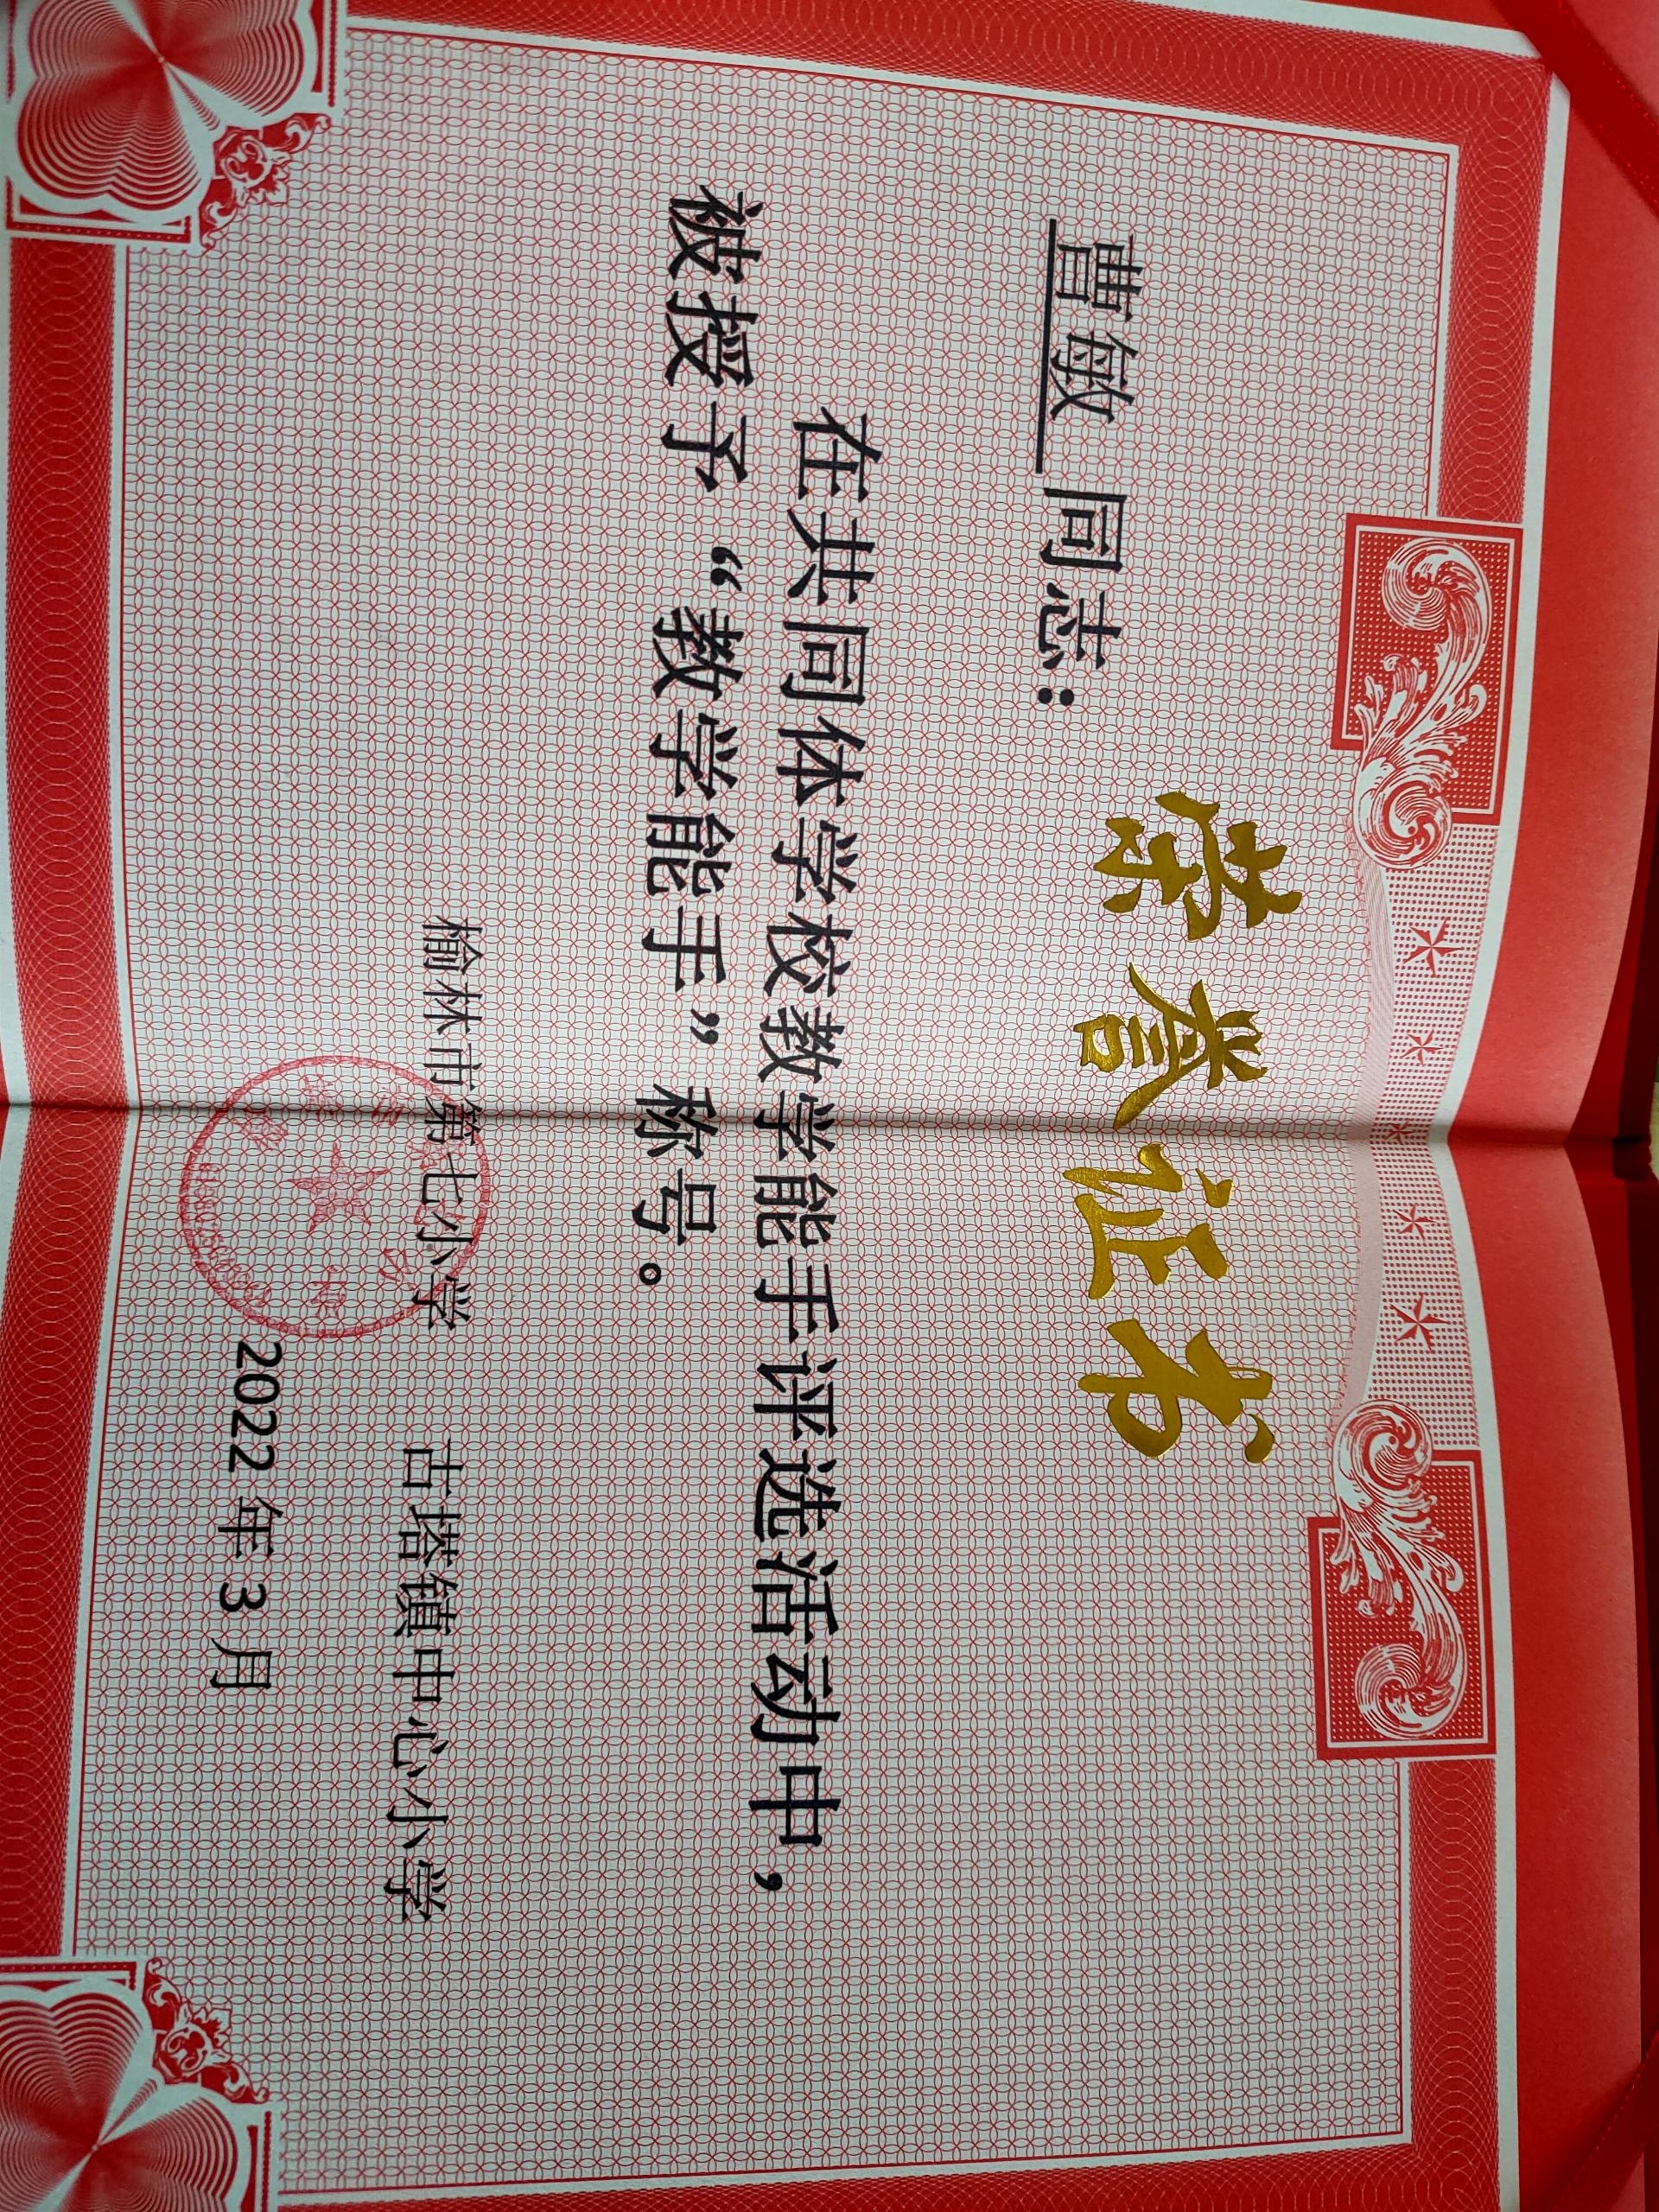 荣誉证书
曹敏 同志：
在共同体学校教学能手评选活动中，
被授予“教学能手”称号。
榆林市第七小学 古塔镇中心小学
2022年3月